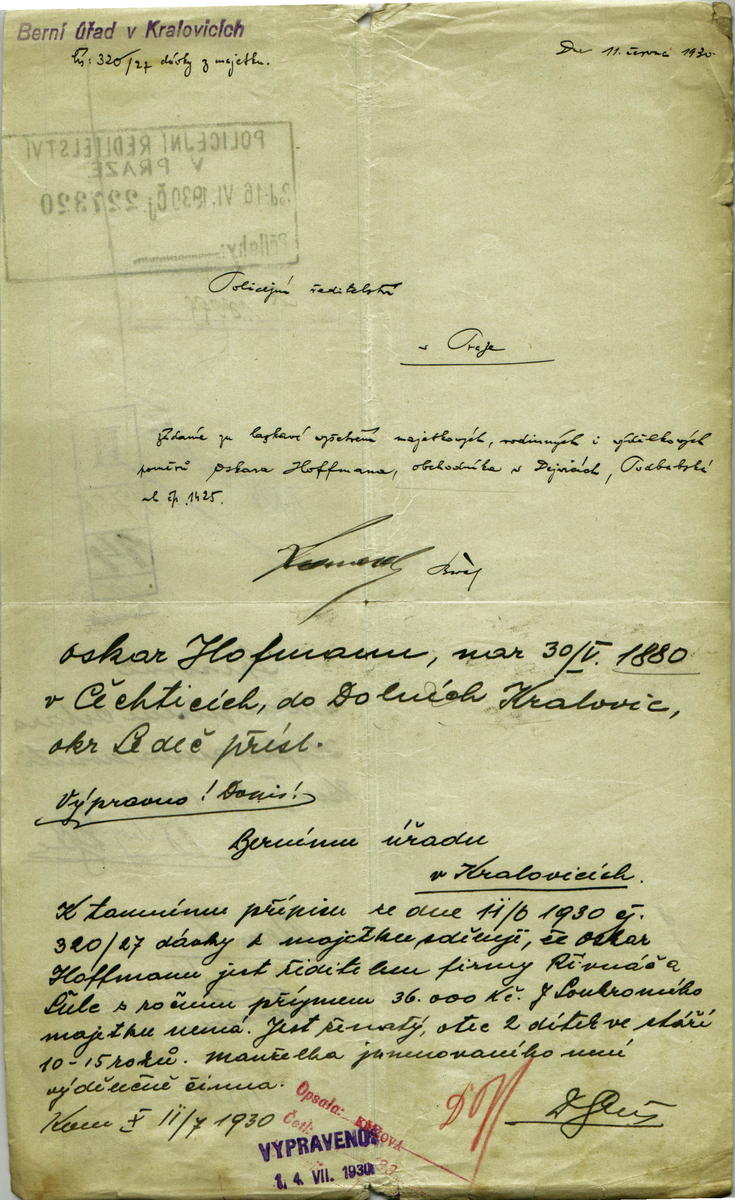 Berní úřad v Kralovicích
čís: 320/27 dávky z majetku.
Dne 11. června 1930
POLICEJNÍ ŘEDITELSTVÍ
V PRAZE
16 VI. 1930 Čj. 227320
Přílohy:
Policejní ředitelství
v Praze
Žádáme za laskavé vyšetření majetkových, rodinných i výdělkových
poměrů Oskara Hoffmana, obchodníka v Dejvicích, Podbabská
ul čp. 1425.
Oskar Hofmann, nar 30/V. 1880
v Čechticích, do Dolních Kralovic,
okr Ledeč přísl.
Výpravno! Dopis!
Bernímu úřadu
v Kralovicích.
K tamnímu přípisu ze dne 11/6 1930 čj.
320/27 dávky z majetku sděluji, že Oskar
Hoffmann jest ředitelem firmy Řivnáč a
s ročním příjmem 36.000 Kč. Soukromého
majetku nemá. Jest ženatý, otec 2 dítek ve stáří
10-15 roků. manželka jmenovaného není
výdělečně činna.
Kom X 11/7 1930
Opsala:
Četl:
VYPRAVENO
14. VII. 1930